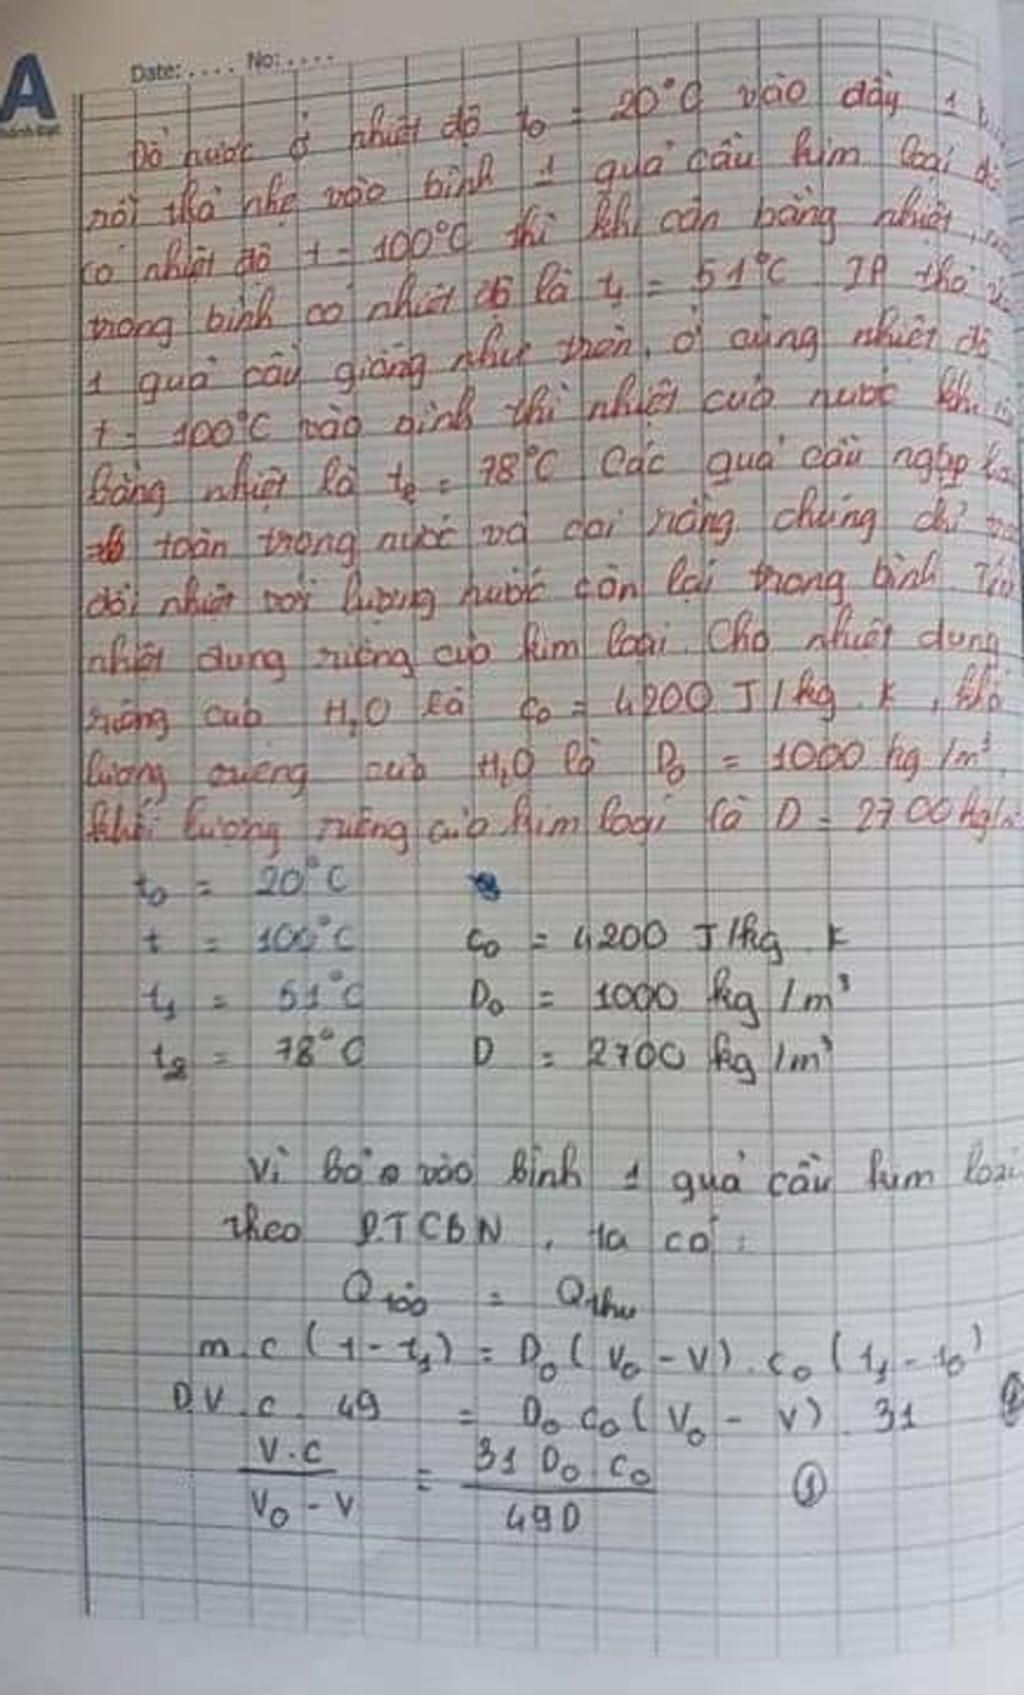 A
Date: .... No: ....
Đổ nước ở nhiệt độ t₀ = 20°C vào đầy 1
rồi thả nhẹ vào bình 1 quả cầu kim loại
có nhiệt độ t = 100°C thì khi cân bằng nhiệt,
trong bình có nhiệt độ là t₁ = 51°C. Thả
1 quả cầu giống như trên, ở cùng nhiệt độ
t = 100°C vào bình thì nhiệt của nước khi
bằng nhiệt là t₂ = 78°C Các quả cầu ngập
toàn trong nước và coi rằng chúng chỉ
đổi nhiệt với lượng nước còn lại trong bình.
nhiệt dung riêng của kim loại. Cho nhiệt dung
riêng của H₂O là c₀ = 4200 J/kg.K,
lượng riêng của H₂O là D₀ = 1000 kg/m³.
khối lượng riêng của kim loại là D = 2700 kg/
t₀ = 20°C
t = 100°C c₀ = 4200 J/kg.K
t₁ = 51°C D₀ = 1000 kg/m³
t₂ = 78°C D = 2700 kg/m³
Vì bỏ vào bình 1 quả cầu kim loại
theo PTCBN, ta có:
Qtỏa = Qthu
m.c(t-t₁) = D₀(V₀-V).c₀(t₁-t₀)
D.V.c.49 = D₀c₀(V₀-V).31
V.c/(V₀-V) = 31D₀.c₀/49D ①